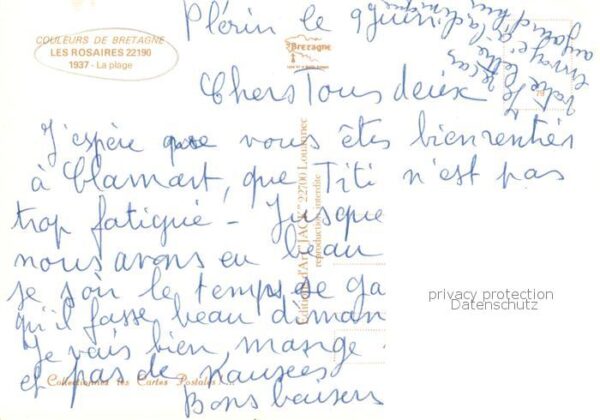 COULEURS DE BRETAGNE
LES ROSAIRES 22190
1937 - La plage
Bretagne
Plérin le 9 juin
Chers Tous deux
J'espère que vous êtes bien rentrés
à Clamart, que Titi n'est pas
trop fatigué - Jusque
nous avons eu beau
se soir le temps se ga
qu'il fasse beau diman
Je vais bien, mange
et pas de nausées
Bons baisers
votre lettre
envoyé
Editions d'Art "JACK" 22700 Louannec
reproduction interdite
Collectionnez les Cartes Postales
privacy protection
Datenschutz